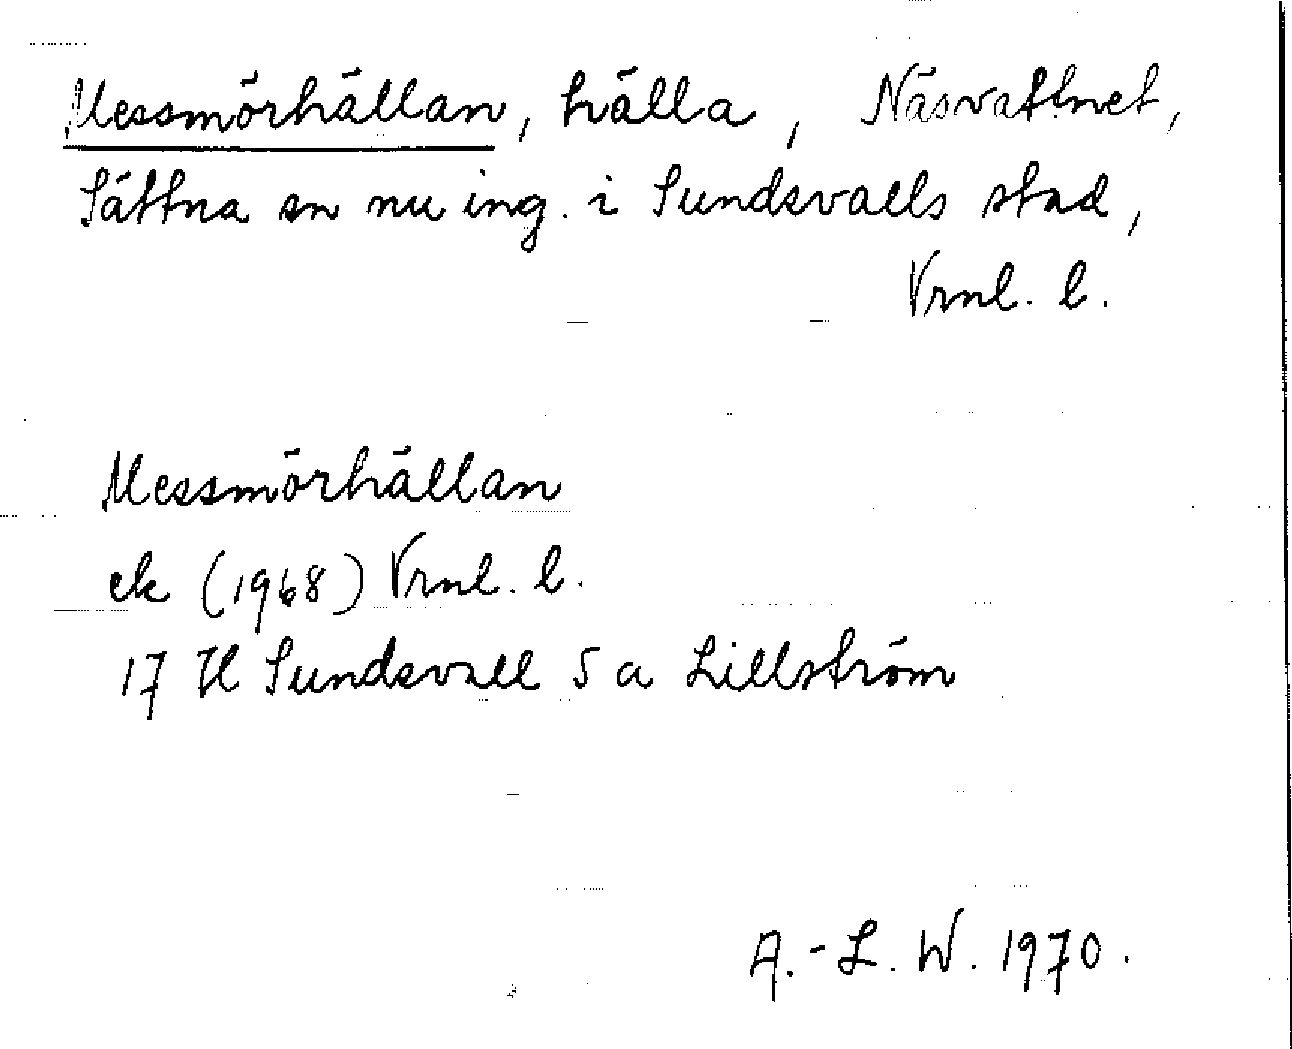 Messmörhällan, hälla, Näsvattnet,
Sättna sn nu ing. i Sundsvalls stad,
Vrnl. l.
Messmörhällan
ek (1968) Vrnl. l.
17 H Sundsvall 5 a Lillström
A.-L. W. 1970.